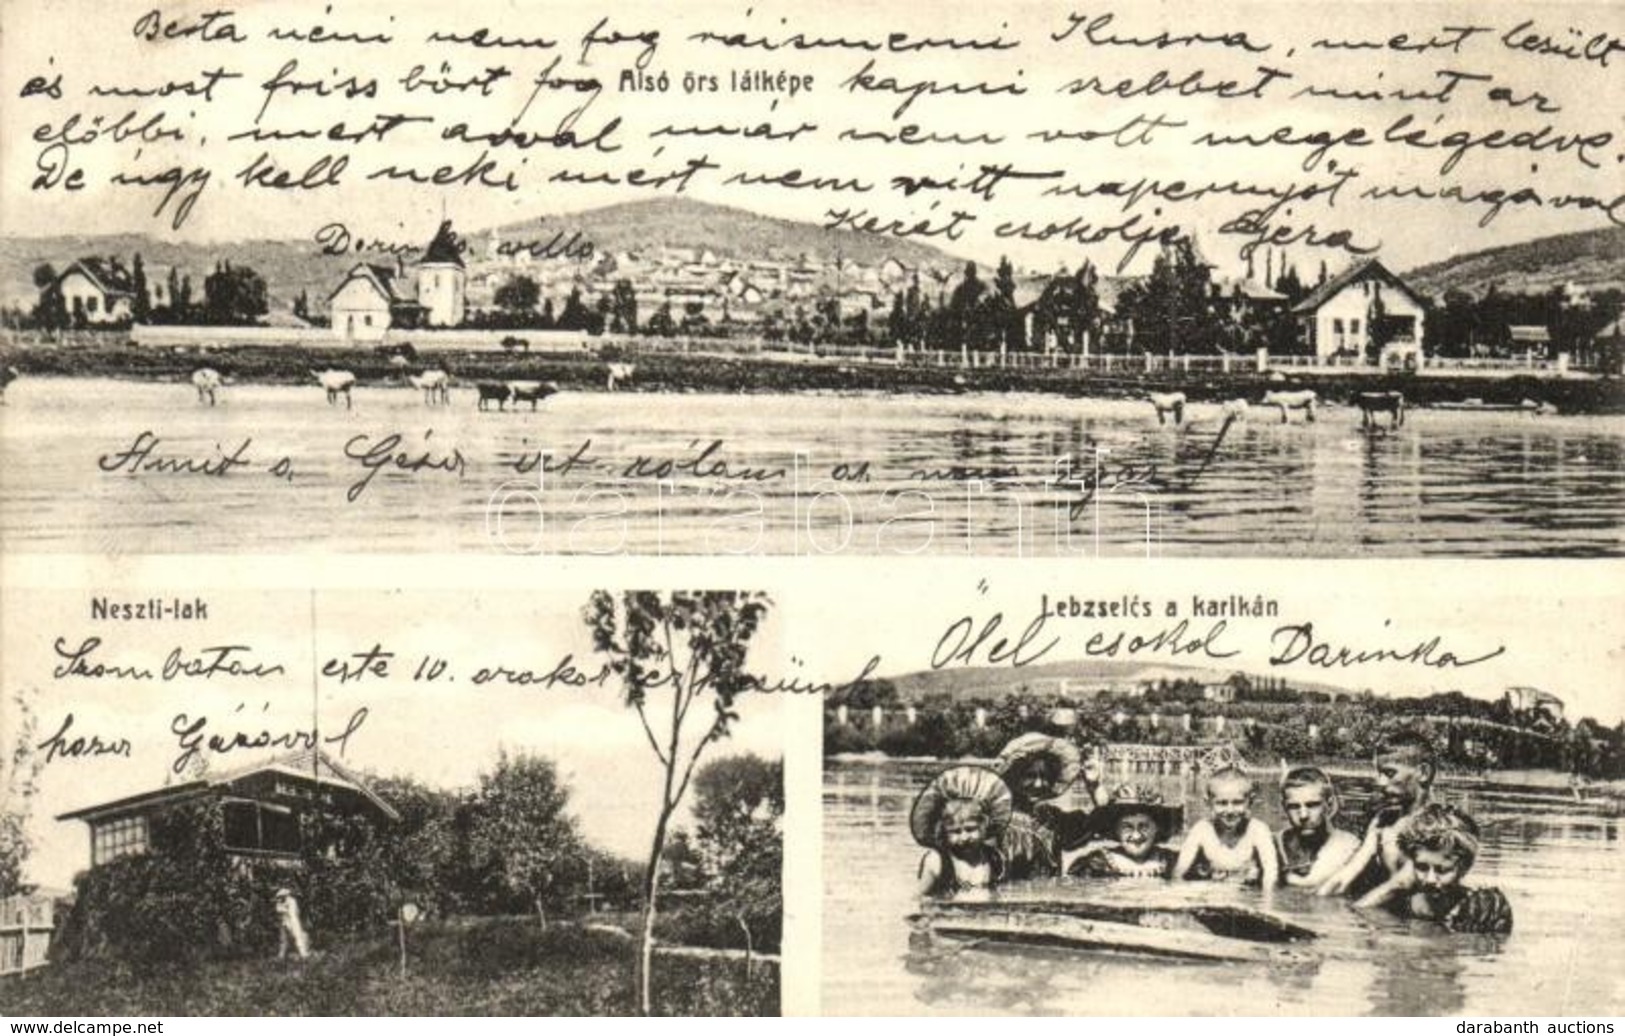 Berta néni nem fog ráismerni Ilusra, mert lesült
és most friss bört fog kapni szebbet mint az
Alsó örs látképe
előbbi, mert avval már nem volt megelégedve.
De úgy kell neki mért nem vitt napernyőt magával
Kezét csókolja Géza
Darinka villa
Amit a Géza írt rólam az nem igaz!
darabanth
Neszti-lak
Szombaton este 10. órakor érkezünk
haza Gézával
Lebzselés a karikán
Ölel csókol Darinka
www.delcampe.net
darabanth auctions